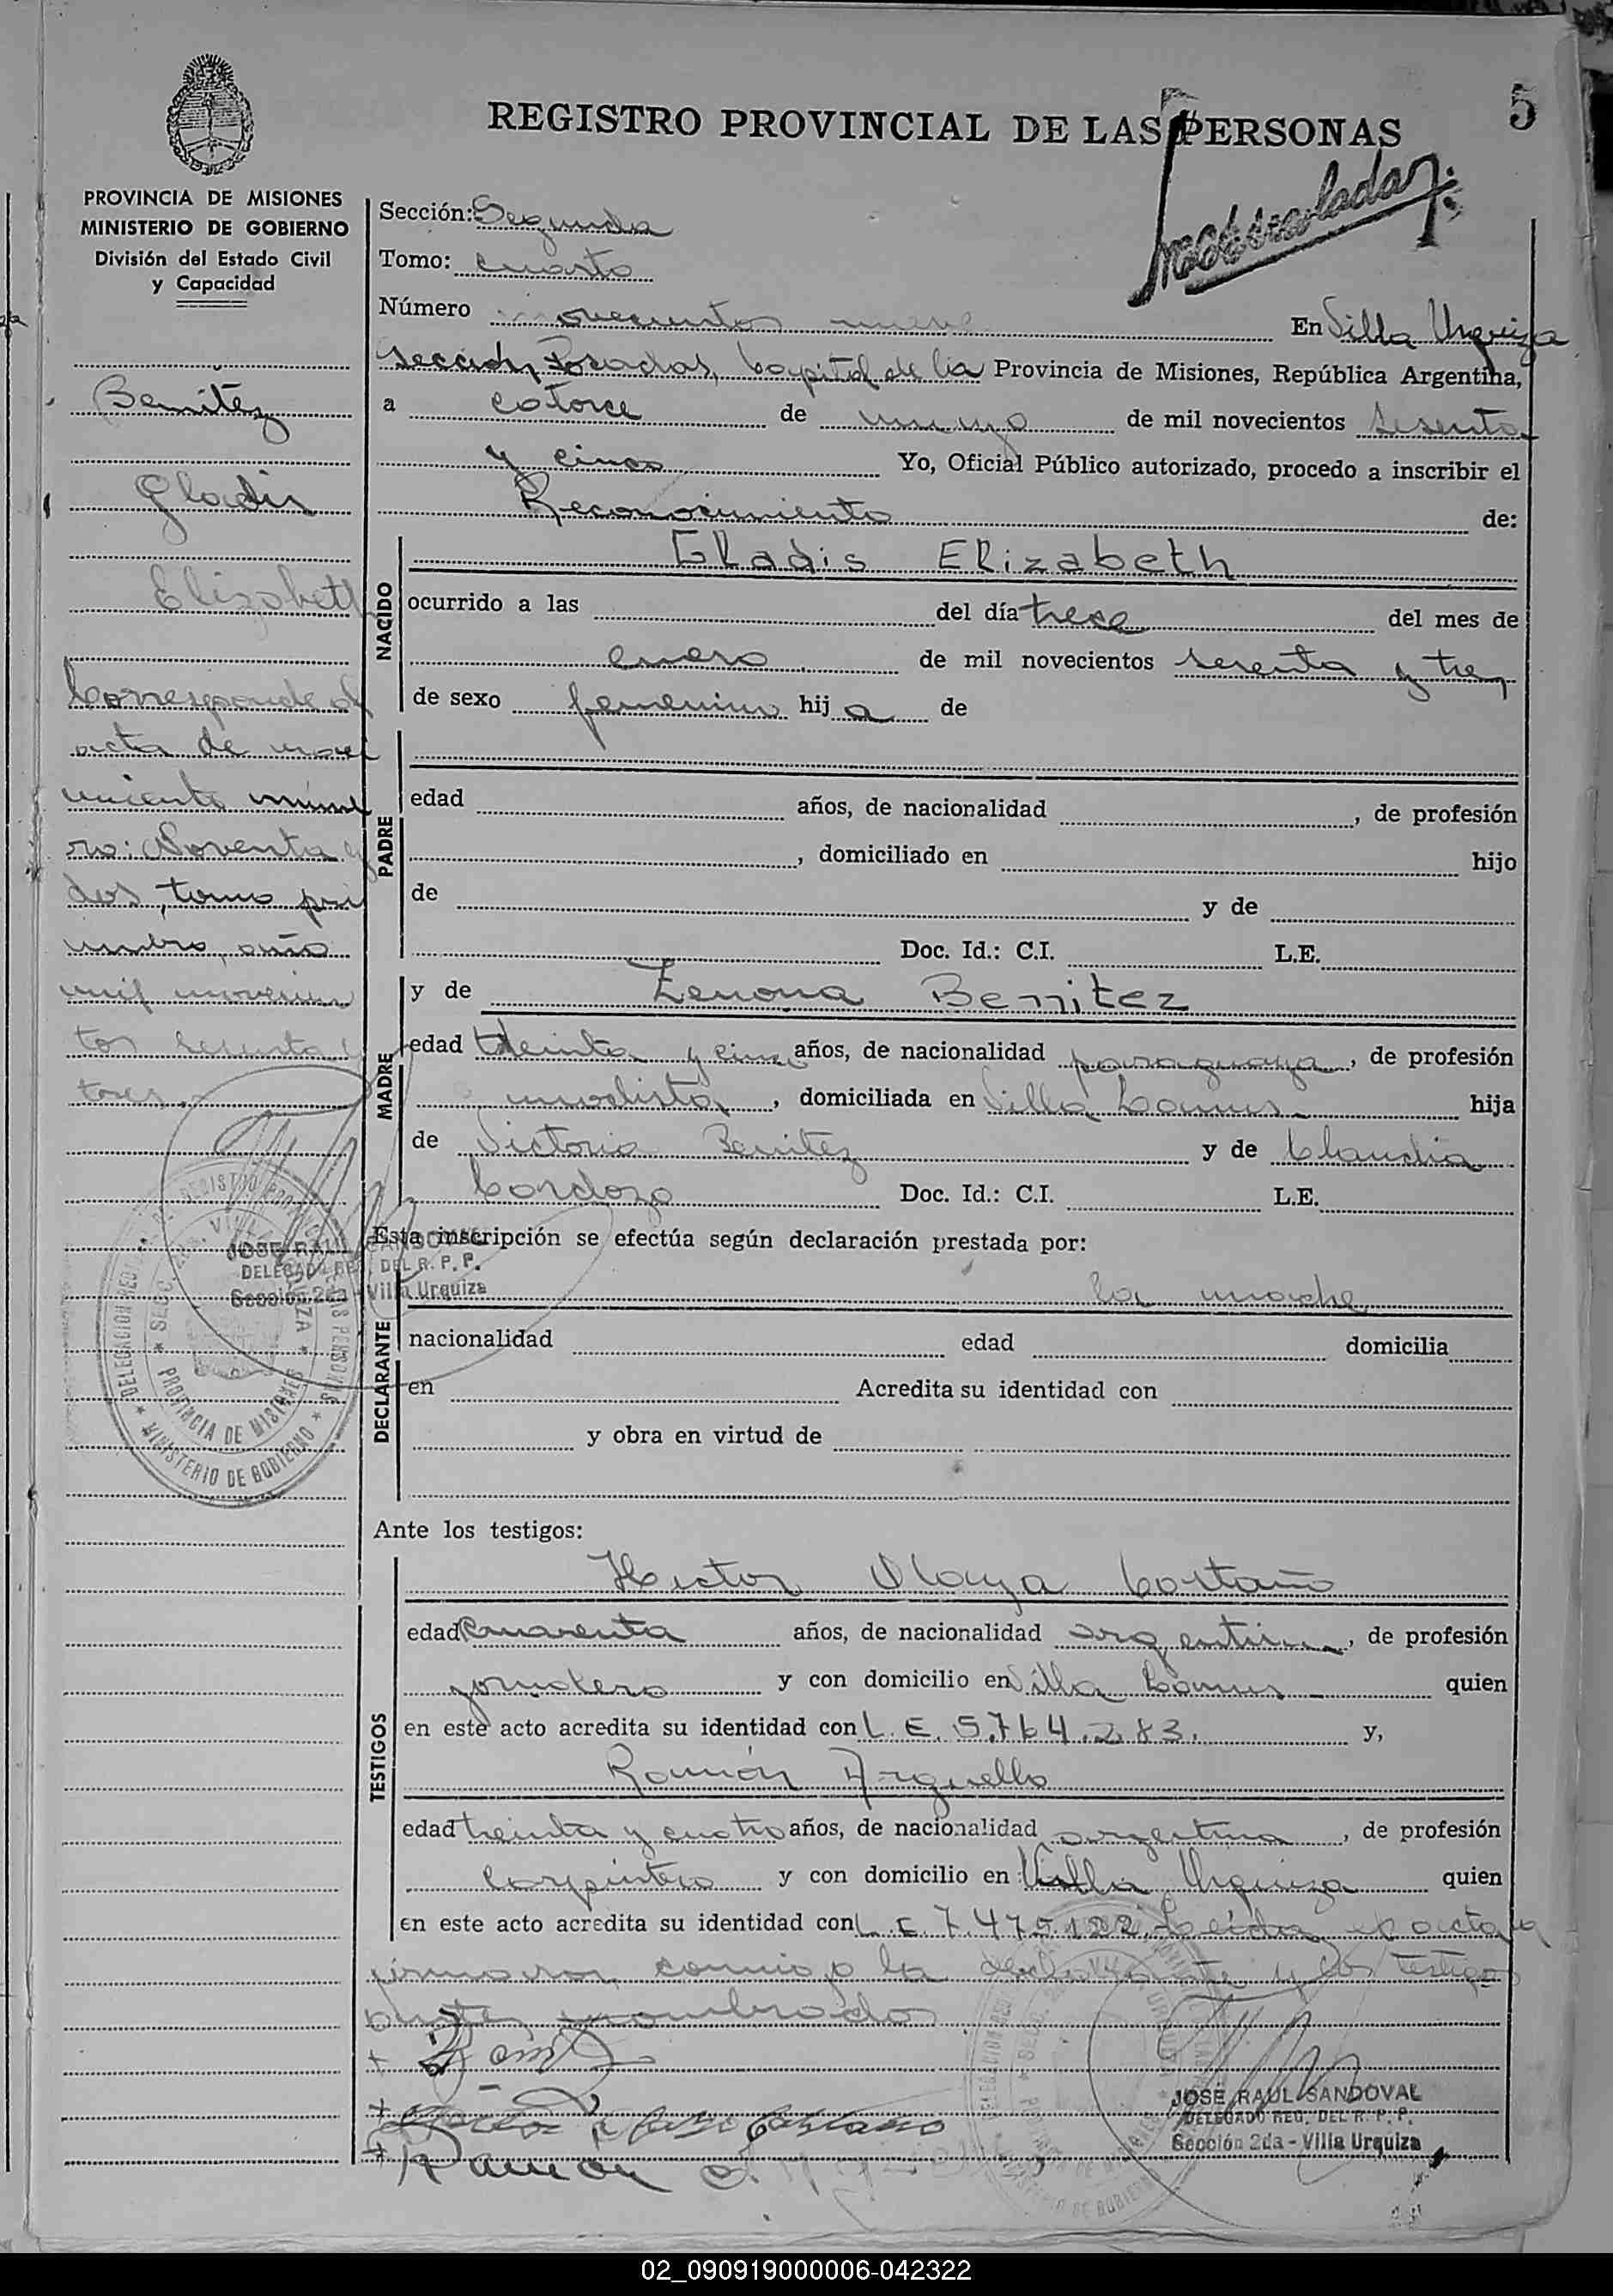 5
REGISTRO PROVINCIAL DE LAS PERSONAS
PROVINCIA DE MISIONES
MINISTERIO DE GOBIERNO
División del Estado Civil
y Capacidad
Benitez
Gladis
Elizabeth
Corresponde al
acta de naci
miento núme
ro: Noventa y
dos, tomo pri
mero, año
mil novecien
tos sesenta y
tres.
JOSÉ RAUL SANDOVAL
DELEGADO REG. DEL R. P. P.
Sección 2da - Villa Urquiza
DELEGACION REGISTRO PROVINCIAL DE LAS PERSONAS
SECC. 2da. VILLA URQUIZA
PROVINCIA DE MISIONES
MINISTERIO DE GOBIERNO
Sección: Segunda
Tomo: cuarto
Número novecientos nueve En Villa Urquiza
Sección Posadas, Capital de la Provincia de Misiones, República Argentina,
a catorce de mayo de mil novecientos sesenta
y cinco Yo, Oficial Público autorizado, procedo a inscribir el
Reconocimiento de:
NACIDO
Gladis Elizabeth
ocurrido a las del día trece del mes de
enero de mil novecientos sesenta y tres
de sexo femenino hij a de
PADRE
edad años, de nacionalidad , de profesión
, domiciliado en hijo
de y de
Doc. Id.: C.I. L.E.
MADRE
y de Zenona Benitez
edad treinta y cinco años, de nacionalidad paraguaya, de profesión
modista, domiciliada en Villa Lanus hija
de Victorio Benitez y de Claudia
Cordozo Doc. Id.: C.I. L.E.
Esta inscripción se efectúa según declaración prestada por:
la madre
DECLARANTE
nacionalidad edad domicilia
en Acredita su identidad con
y obra en virtud de
Ante los testigos:
TESTIGOS
Hector Olaya Cortaño
edad Cuarenta años, de nacionalidad argentina, de profesión
jornalero y con domicilio en Villa Lanus quien
en este acto acredita su identidad con L.E. 5.764.283. y,
Ramón Arguello
edad treinta y cuatro años, de nacionalidad argentina, de profesión
Carpintero y con domicilio en Villa Urquiza quien
en este acto acredita su identidad con L.E. 7.475.122. Leída el acta la
firmaron conmigo la declarante y los testigos
antes nombrados
Ramón
JOSÉ RAUL SANDOVAL
DELEGADO REG. DEL R. P. P.
Sección 2da - Villa Urquiza
02_090919000006-042322